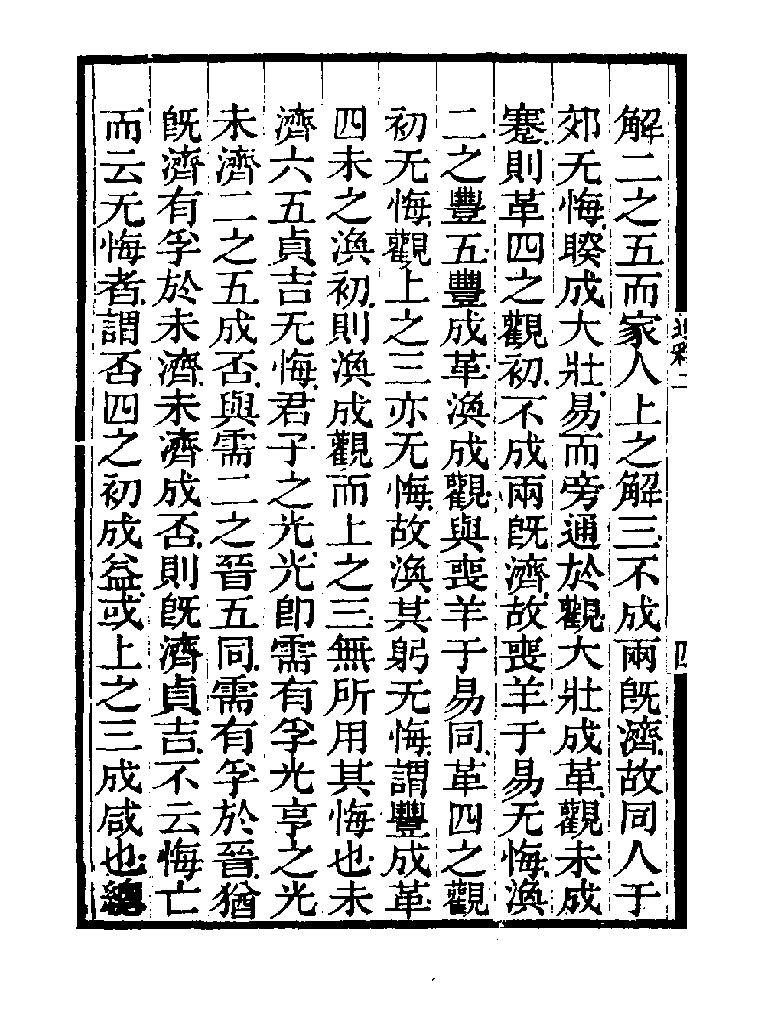 解二之五而家人上之解三不成兩旣濟故同人于
郊无悔睽成大壯易而旁通於觀大壯成革觀未成
蹇則革四之觀初不成兩旣濟故喪羊于易无悔渙
二之豐五豐成革渙成觀與喪羊于易同革四之觀
初无悔觀上之三亦无悔故渙其躬无悔謂豐成革
四未之渙初則渙成觀而上之三無所用其悔也未
濟六五貞吉无悔君子之光光卽需有孚光亨之光
未濟二之五成否與需二之晉五同需有孚於晉猶
旣濟有孚於未濟未濟成否則旣濟貞吉不云悔亡
而云无悔者謂否四之初成益或上之三成咸也總
通釋二
四